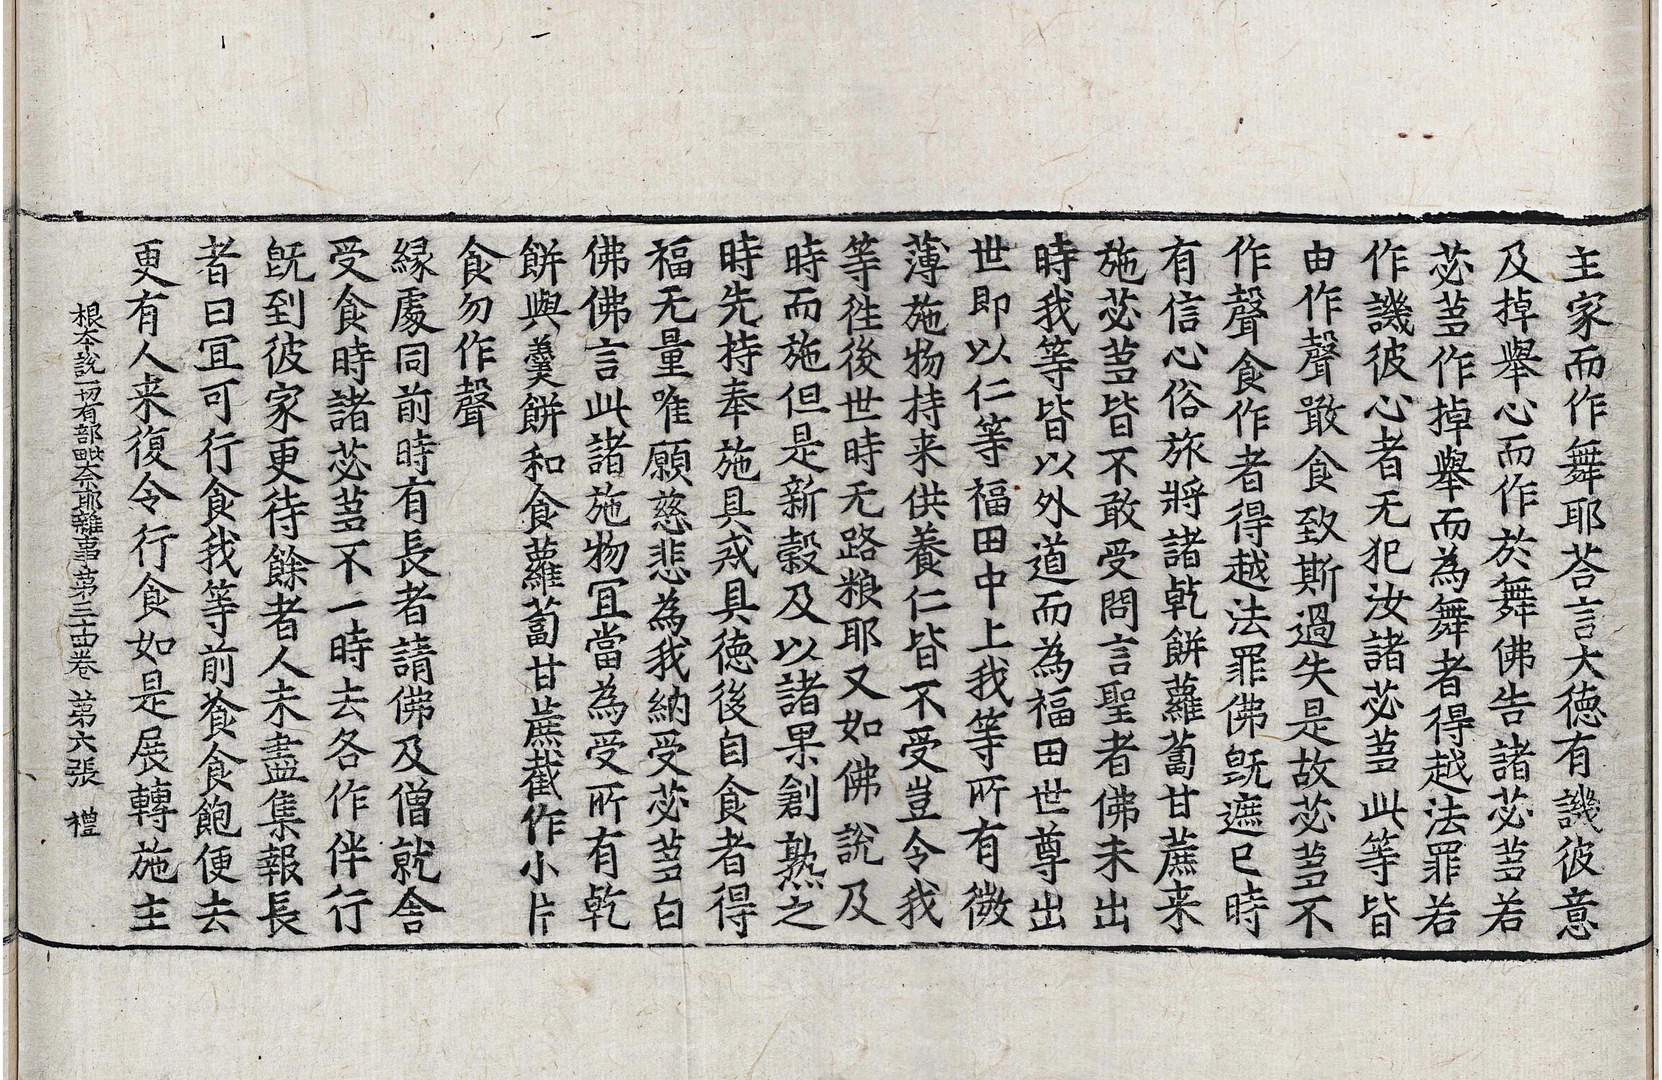 主家而作舞耶荅言大德有譏彼意
及掉舉心而作於舞佛告諸苾芻若
苾芻作掉舉而為舞者得越法罪若
作譏彼心者无犯汝諸苾芻此等皆
由作聲噉食致斯過失是故苾芻不
作聲食作者得越法罪佛旣遮已時
有信心俗旅將諸乾餅蘿蔔甘蔗来
施苾芻皆不敢受問言聖者佛未出
時我等皆以外道而為福田世尊出
世即以仁等福田中上我等所有微
薄施物持来供養仁皆不受豈令我
等徃後世時无路粮耶又如佛說及
時而施但是新穀及以諸果創熟之
時先持奉施具戒具德後自食者得
福无量唯願慈悲為我納受苾芻白
佛佛言此諸施物冝當為受所有乾
餅與羹餅和食蘿蔔甘蔗截作小片
食勿作聲
縁處同前時有長者請佛及僧就舍
受食時諸苾芻不一時去各作伴行
旣到彼家更待餘者人未盡集報長
者曰冝可行食我等前飡食飽便去
更有人来復令行食如是展轉施主
根本說一切有部毗奈耶雜事第三十四卷 第六張 禮